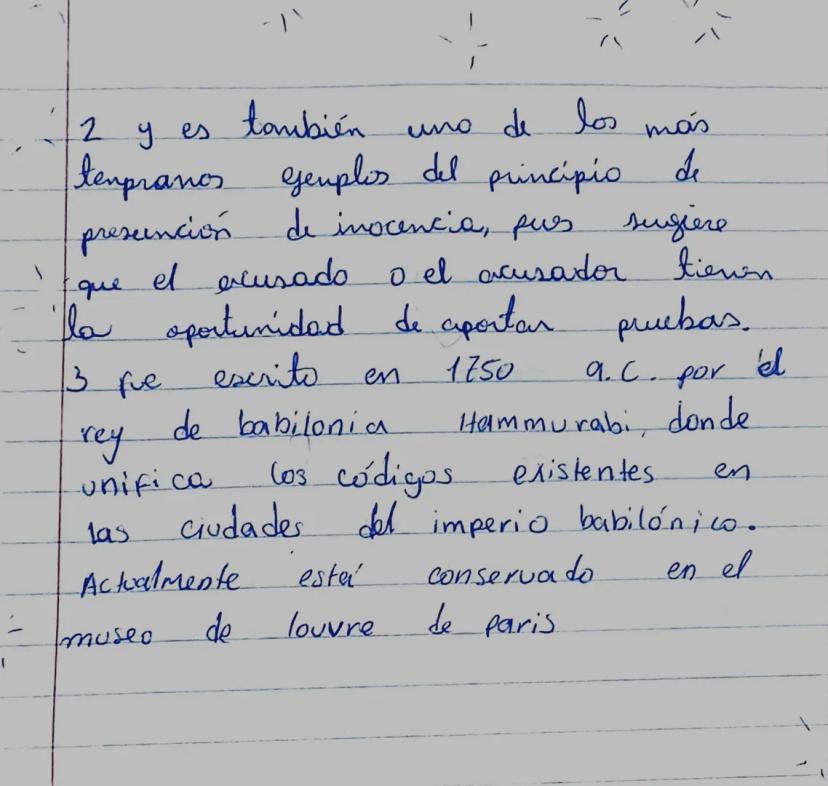 2 y es también uno de los más
tenpranos ejenplos del principio de
presunción de inocencia, pues sugiere
que el acusado o el acusador tienen
la oportunidad de aportar pruebas.
3 fue escrito en 1750 a.C. por el
rey de babilonia Hammurabi, donde
unifica los códigos existentes en
las ciudades del imperio babilónico.
Actualmente está conservado en el
museo de louvre de paris